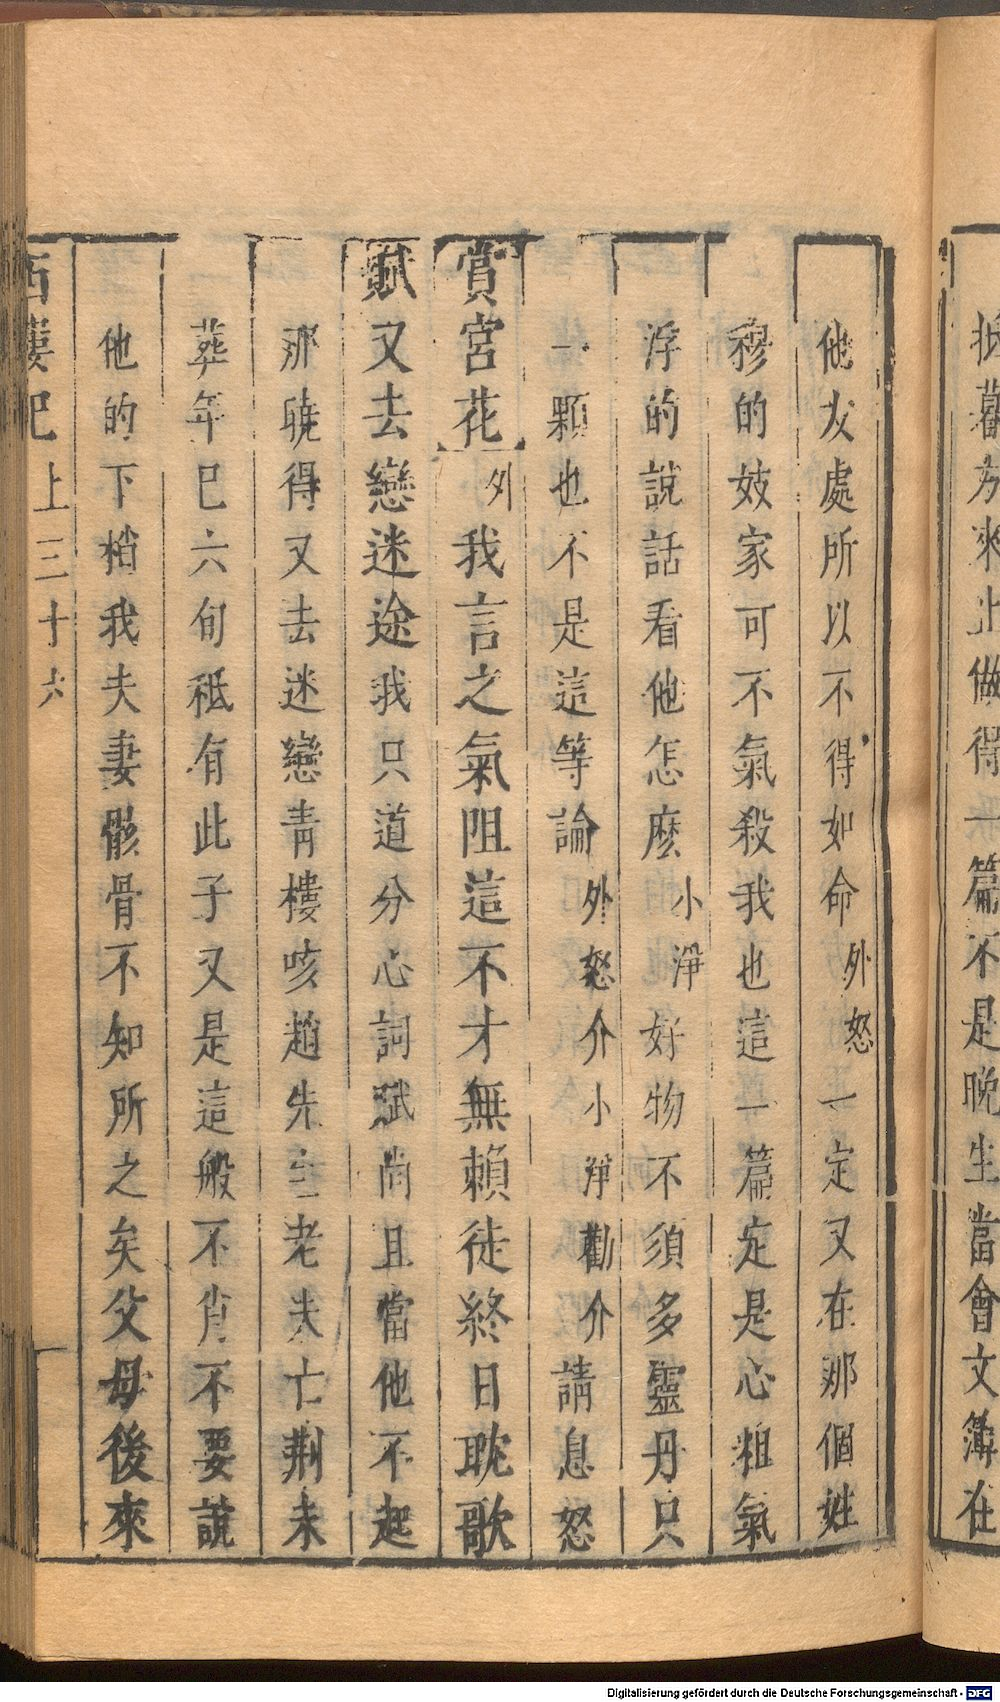 抵暮方來止做得一篇不是晚生當會文簿在
他友處所以不得如命外怒一定又在那個姓
穆的妓家可不氣殺我也這一篇定是心粗氣
浮的說話看他怎麽小淨好物不須多靈丹只
一顆也不是這等論外怒介小淨勸介請息怒
賞宮花外我言之氣阻這不才無賴徒終日耽歌
賦又去戀迷途我只道分心詞賦尚且當他不起
那曉得又去迷戀青樓咳趙先生老夫亡荆未
葬年已六旬秪有此子又是這般不肖不要說
他的下梢我夫妻骸骨不知所之矣父母後來
西樓記 上 三十六
Digitalisierung gefördert durch die Deutsche Forschungsgemeinschaft - DFG